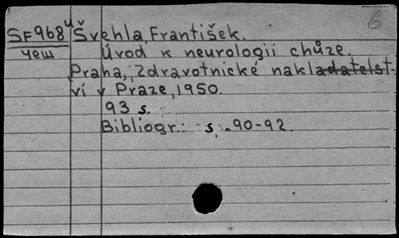 6
SF968 4 Švehla, František.
чеш Úvod k neurologii chůze.
Praha, Zdravotnické nakladatelst-
ví v Praze, 1950.
93 s.
Bibliogr.: s. 90-92.